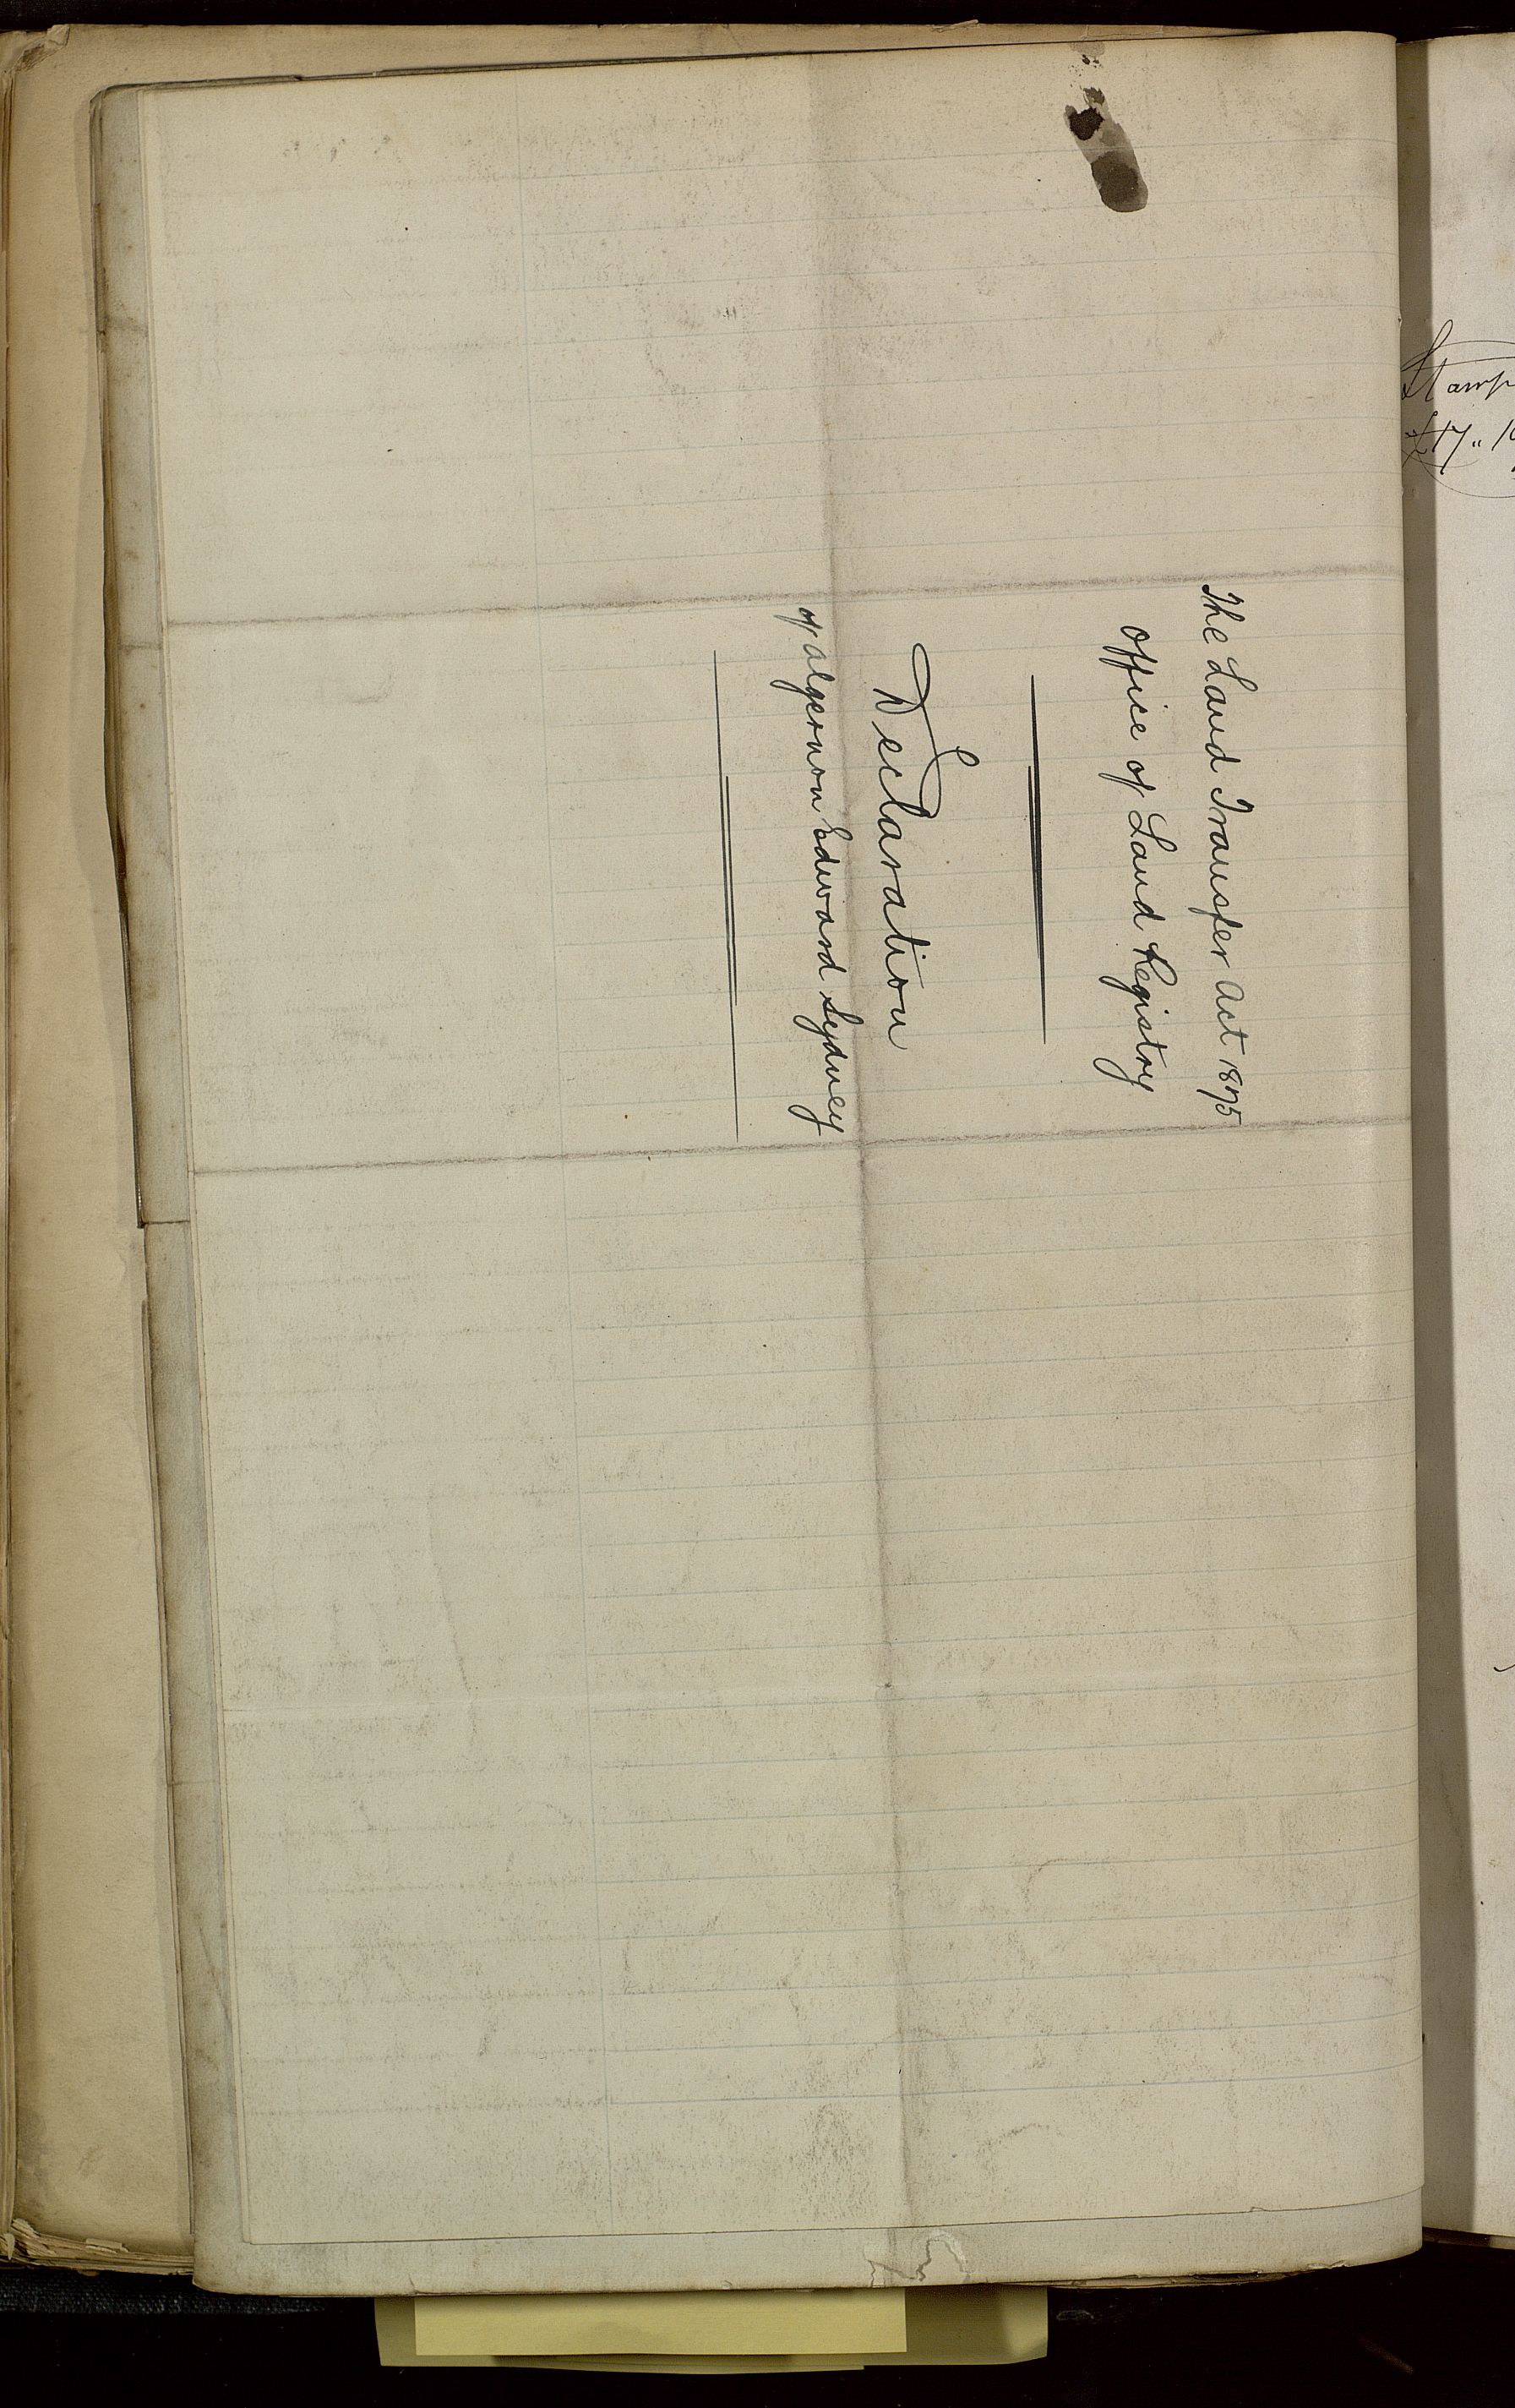 The Land Transfer Act 1875
Office of Land Registry
Declaration
of Algernon Edward Sydney
Stamp
£17 "